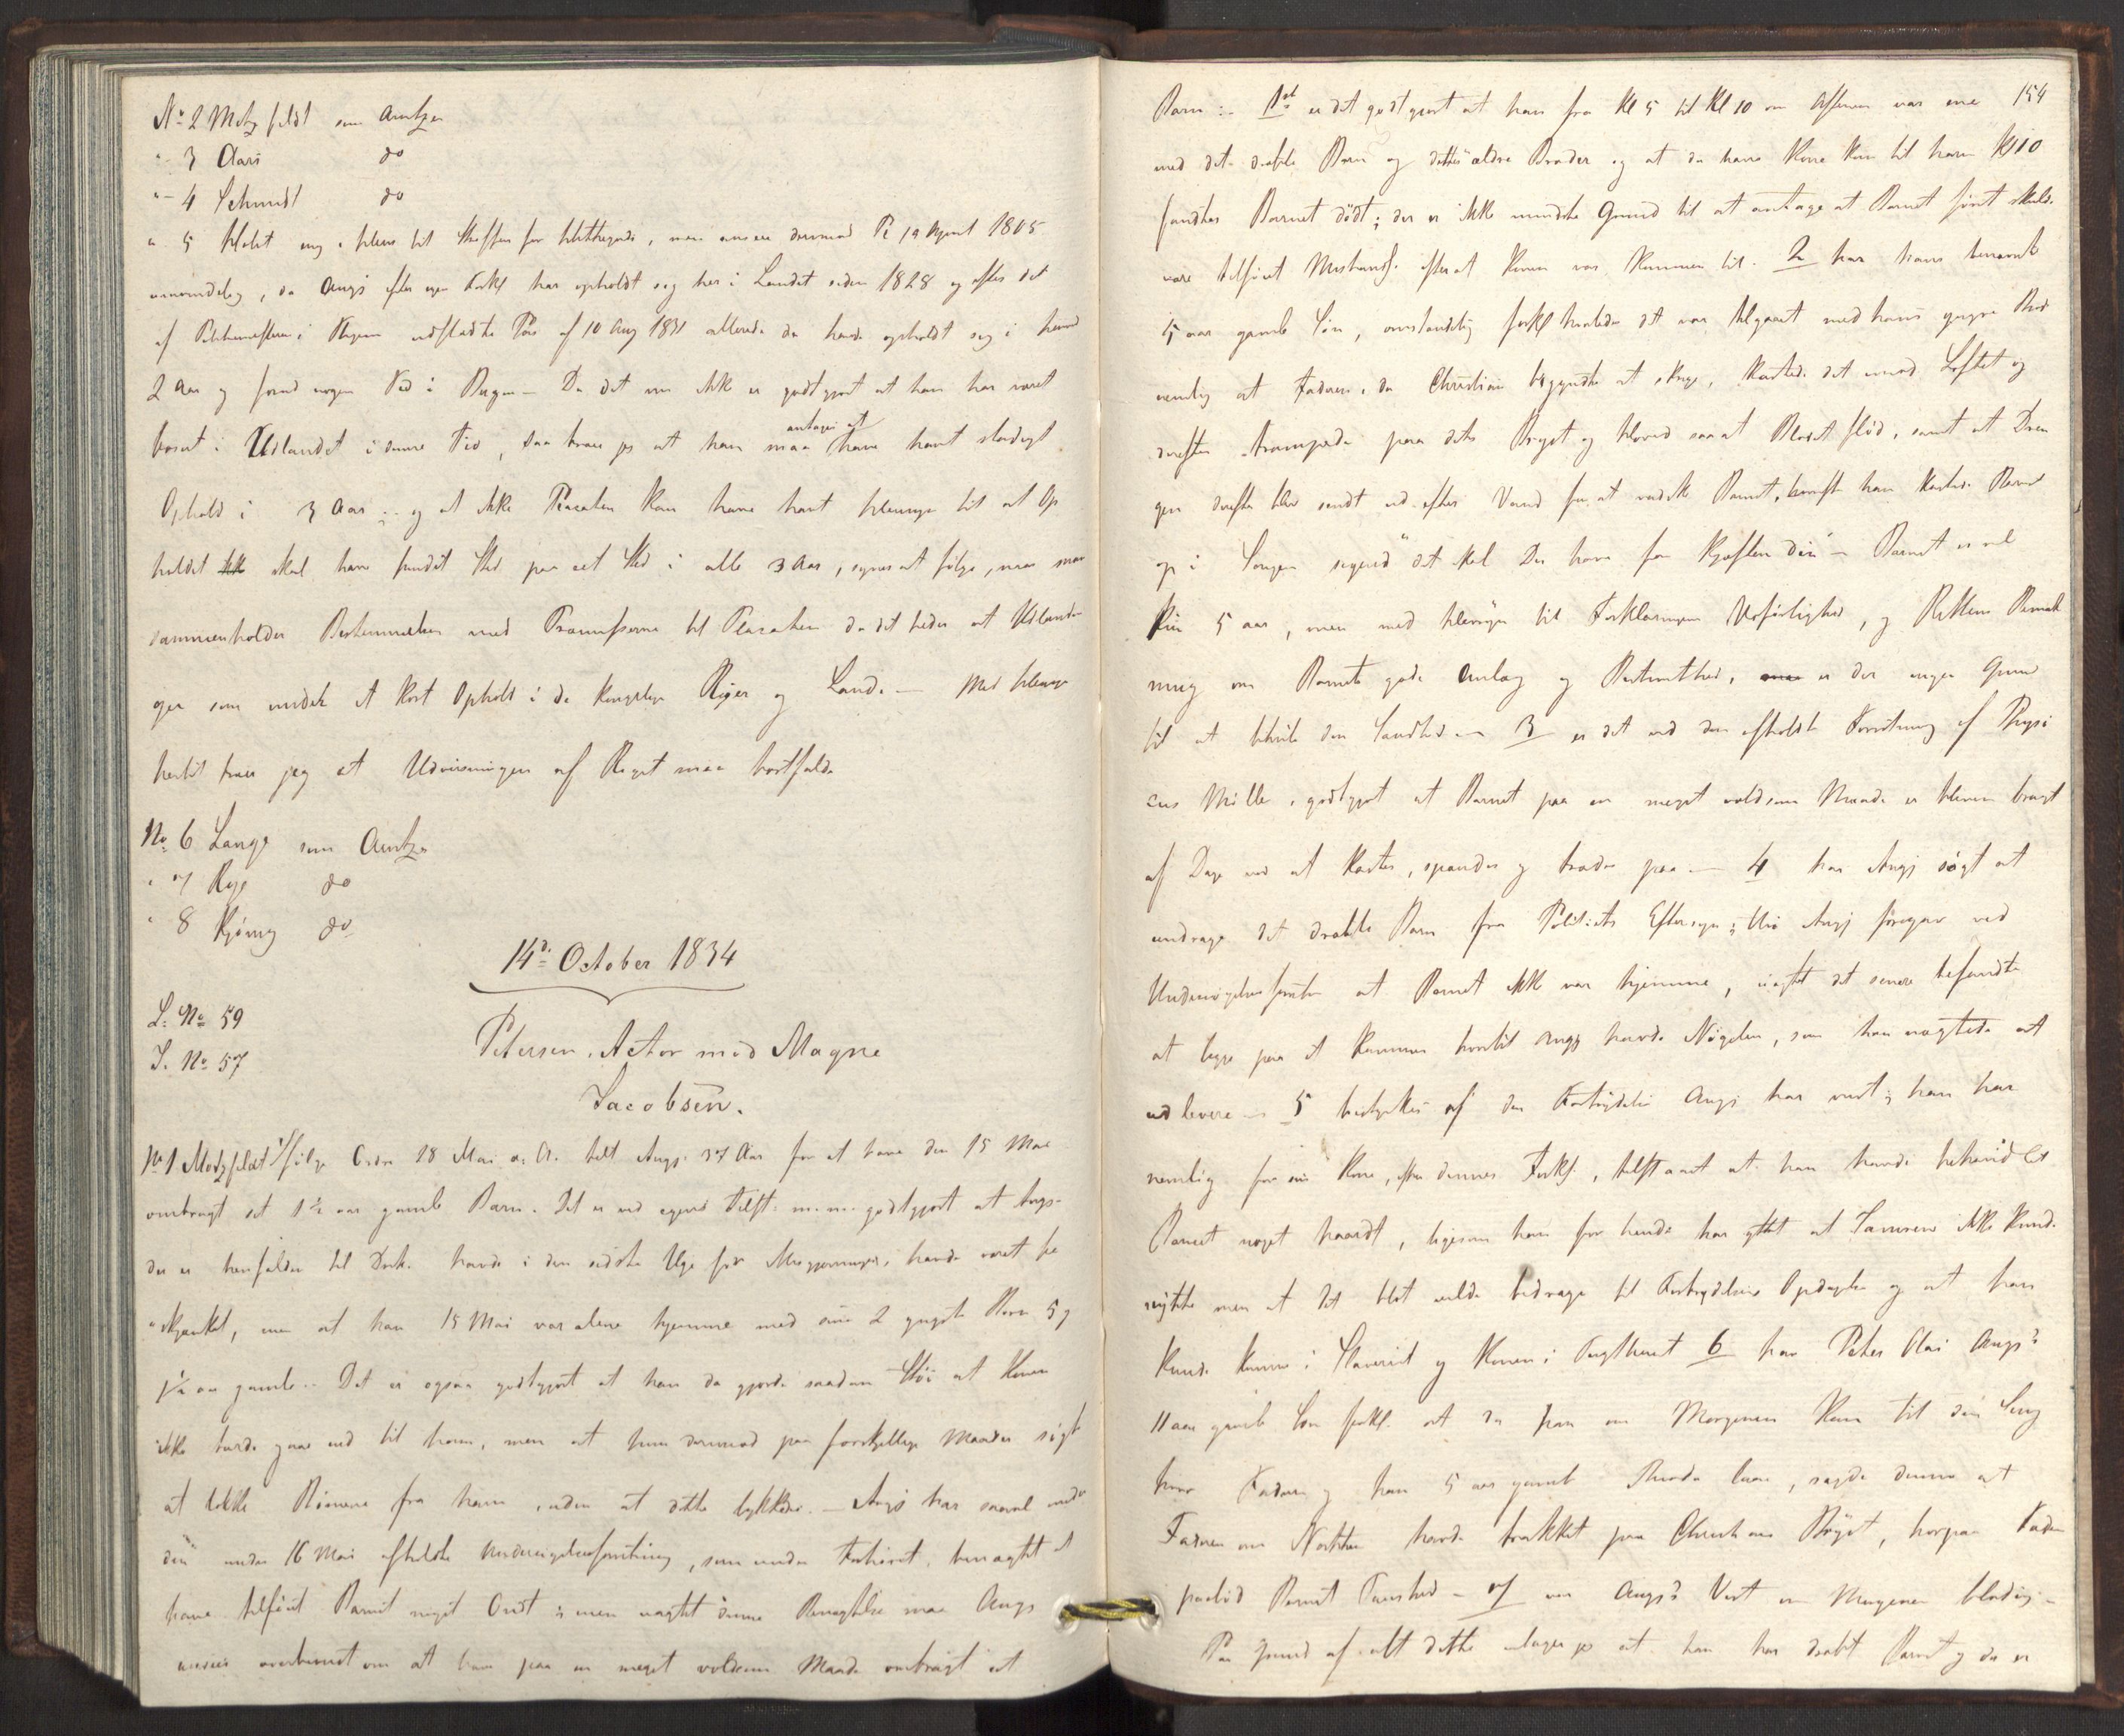 No 2 Motzfeldt som Aubert
" 3 Aars do
" 4 Schmidt do
" 5 Holst mig i hens til Straffen for Betteri, men anseer derimod Pl 19 April 1805
uanvendelig, da Angj efter egen Forkl har opholdt sig her i Landet siden 1828 og efter det
af Politimesteren i Bergen udstædte Pas af 10 Aug 1831 allerede da havde opholdt sig i
2 Aar og forud nogen Tid i Bergen - Da det nu ikke er godtgjort at han har været
bosat i Udlandet i denne Tid, saa troer jeg at han maa antages at have havt stadigt
Ophold i 3 Aar; - og at ikke Placaten kan have havt Hensyn til at Op
holdet skal have fundet Sted paa eet Sted i alle 3 Aar, synes at følge, naar man
sammenholder Bestemmelsen med Præmisserne til Placaten da det heder at Udlændin
ger som endeel et kort Ophold i de kongelige Riger og Lande - Med Hensyn
hertil troer jeg at Udvisningen af Riget maa bortfalde
No 6 Lange som
" 7 Rye do
" 8 Kjønig do
14d October 1834
L. No 59
J. No 57
Petersen, Actor mod Magne
Jacobsen.
No 1 Motzfeldt ifølge Ordre 18 Mai a: A. tilt Angj. 37 Aar for at have den 15 Mai
ombragt sit 1½ aar gamle Barn. Det er ved egen Tilst: m. m. godtgjort at Angj
der er henfalden til Drik havde i den sidste Uge før Misgjerningen, havde været be
skjænket, men at han 15 Mai var alene hjemme med sine 2 yngste Børn 5 og
1½ aar gamle. Det er ogsaa godtgjort at han da gjorde saadan Støi at Konen
ikke turde gaae ind til ham, men at hun derimod paa forskjellige Maader søgte
at lokke Børnene fra ham, uden at dette lykkedes. - Angj har saavel under
den under 16 Mai afholdte Undersøgelsesforretning, som under Forhøret, benægtet at
have tilføiet Barnet noget Ondt; men uagtet denne Benægtelse maa Angj
ansees overbeviist om at have paa en meget voldsom Maade ombragt sit
154
Barn: - 1st er det godtgjort at han fra Kl 5 til Kl 10 om Aftenen var ene
med det dræbte Barn og dettes ældre Broder og at da hans Kone kom til ham Kl 10
fandtes Barnet dödt; der er ikke mindste Grund til at antage at Barnet först skulde
være tilføiet Mishandl. efterat Konen var kommen til. 2 har hans benævnte
5 aar gamle Søn, omstændelig forkl hvorledes det var tilgaaet med hans yngre Broder
nemlig at Faderen, da Christian begyndte at skrige, kastede det imod Loftet og
derefter trampede paa dets Bryst og Hoved saa at Blodet flöd, samt at Dren
gen derefter blev sendt ud efter Vand for at vadske Barnet, hvorefter han kastede Barnet
op i Sengen sigende "det skal Du have for Kjæften din" - Barnet er vel
kun 5 aar, men med Hensyn til Forklaringens Udførlighed, og Rettens Bemærk
ning om Barnets gode Anlæg og Bestemthed, er der ingen Grund
til at betvivle dens Sandhed - 3 er det ved den afholdte Forretning af Physi
cus Møller, godtgjort at Barnet paa en meget voldsom Maade er bleven bragt
af Dage ved at kastes, sparkes og trædes paa - 4 har Angj søgt at
unddrage det dræbte Barn fra Politiets Eftersyn; thi Angj foregav ved
Undersøgelsesforretn at Barnet ikke var hjemme, uagtet det senere befandtes
at ligge paa et Kammer hvortil Angj havde Nøgelen, som han nægtede at
udlevere - 5 bestyrkes af den Fortrydelse Angj har viist; han har
nemlig for sin Kone, efter dennes Forkl, tilstaaet at han havde behandlet
Barnet noget haardt, ligesom han for hende har yttret at Taarerne ikke kunde
nytte men at det blot vilde bidrage til Forbrydelsens Opdagelse og at han
kunde komme i Slaveriet og Konen i Tugthuset 6 har Peter Olai Angj's
11 aar gamle Søn forkl. at da han om Morgenen kom til den Seng
hvor Faderen og hans 5 aar gamle Broder laae, sagde denne at
Faderen om Natten havde trakket paa Christians Bryst, hvorpaa Faderen
paabød Barnet Taushed - 7 var Angj's Vest om Morgenen blodig -
Paa Grund af alt dette antager jeg at han har dræbt Barnet og da er